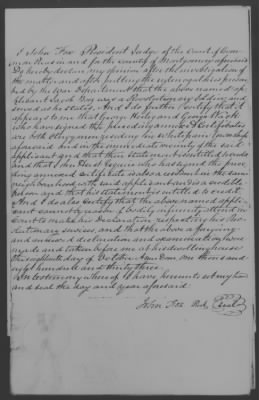 I John Fox President Judge of the Court of Com-
mon Pleas in and for the county of Montgomery aforesaid
Do hereby declare my opinion after the investigation of
the matter and after putting the interrogatories prescri-
bed by the War Department that the above named ap-
plicant Jacob was a Revolutionary Soldier and
served as he states. And I do further Certify that it
appears to me that George and George
who have signed the preceding annexed Certificates
are both Clergymen residing in township
aforesaid and in the immediate vicinity of the said
applicant and that their statements are entitled to
and that John Esquire who has signed the prece-
ding annexed Certificate is also a resident in the same
neighbourhood with said applicant and is a credible
person and that his statement is entitled to credit
And I do also Certify that the above named appli-
cant cannot by reason of bodily infirmity attend in
Court to make his Declaration respecting his Revo-
lutionary services, and that the above foregoing
and annexed declaration and examination were
made and taken before me at his dwelling house
the eighteenth day of October Anno Dom. one thousand
eight hundred and thirty three.
In testimony whereof I have hereunto set my hand
and seal the day and year aforesaid
John Fox Seal